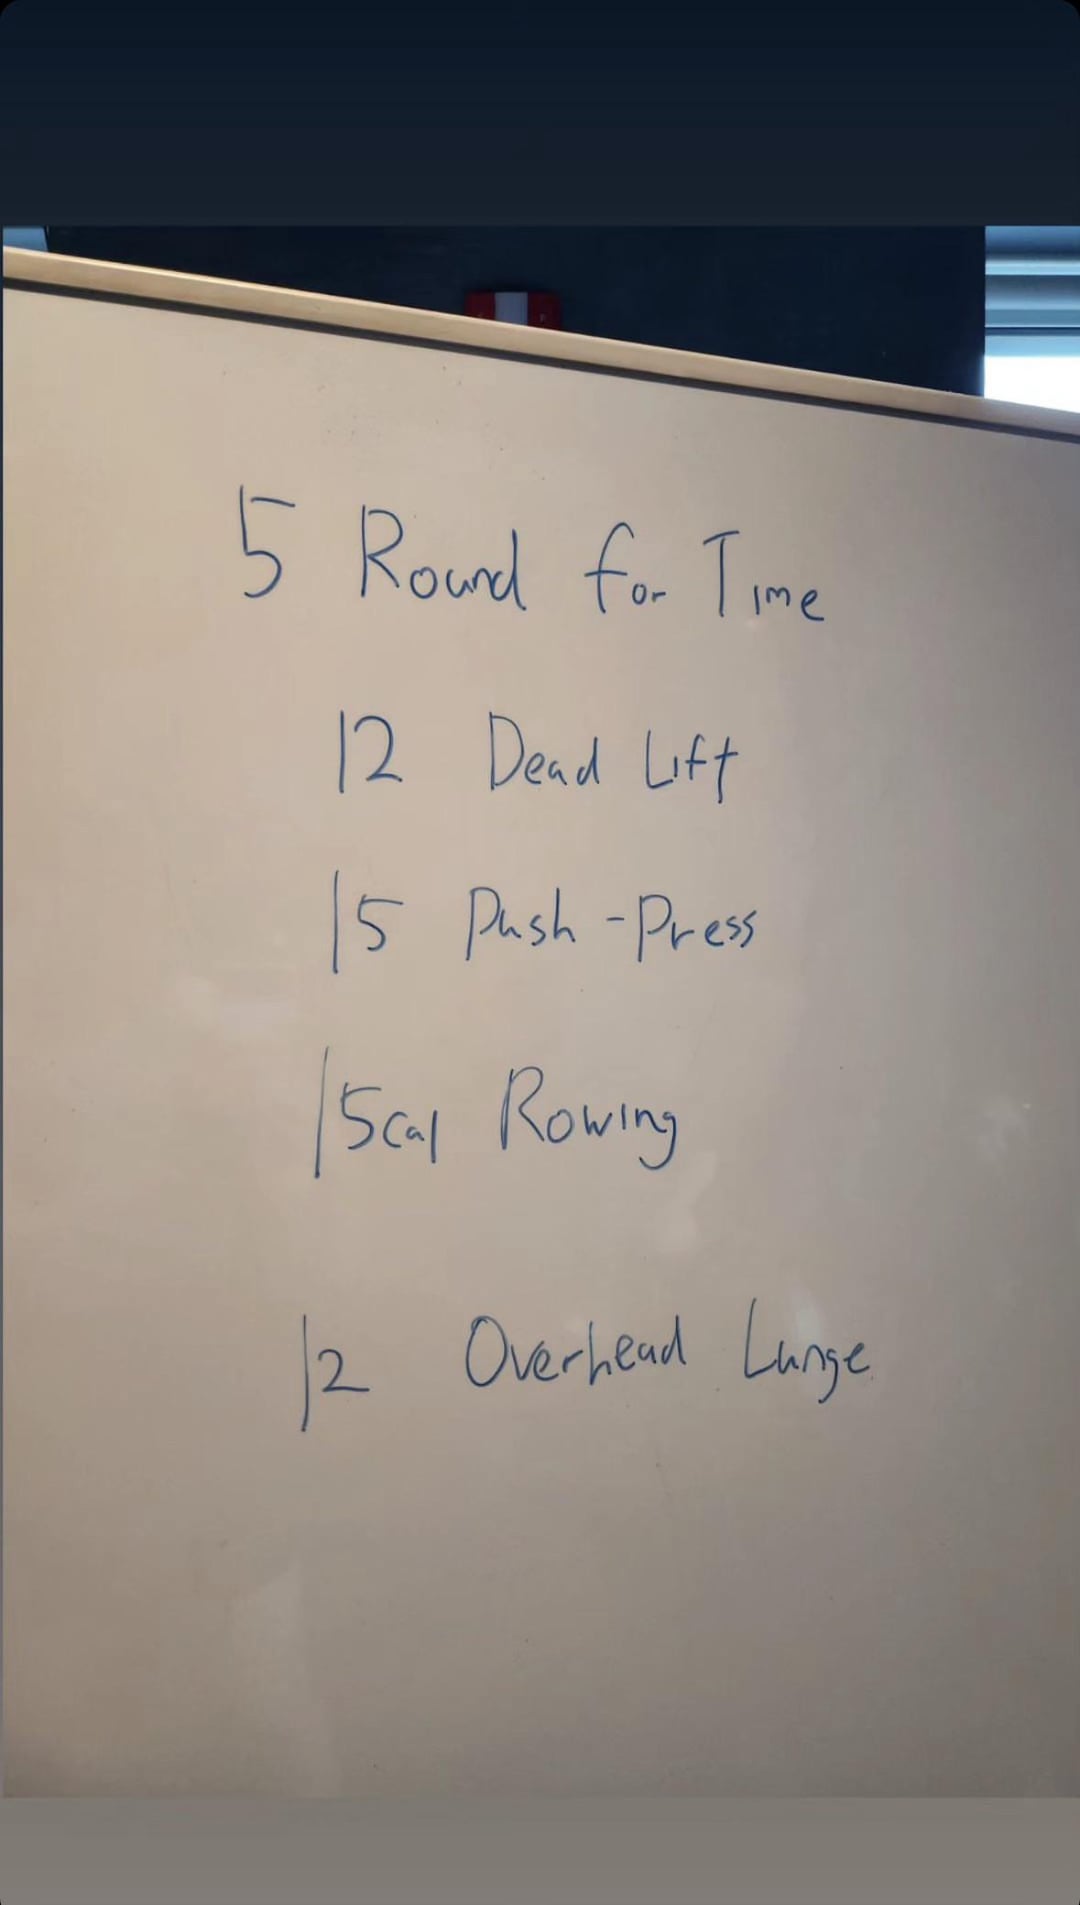 5 Round for Time
12 Dead Lift
15 Push-Press
15cal Rowing
12 Overhead Lunge